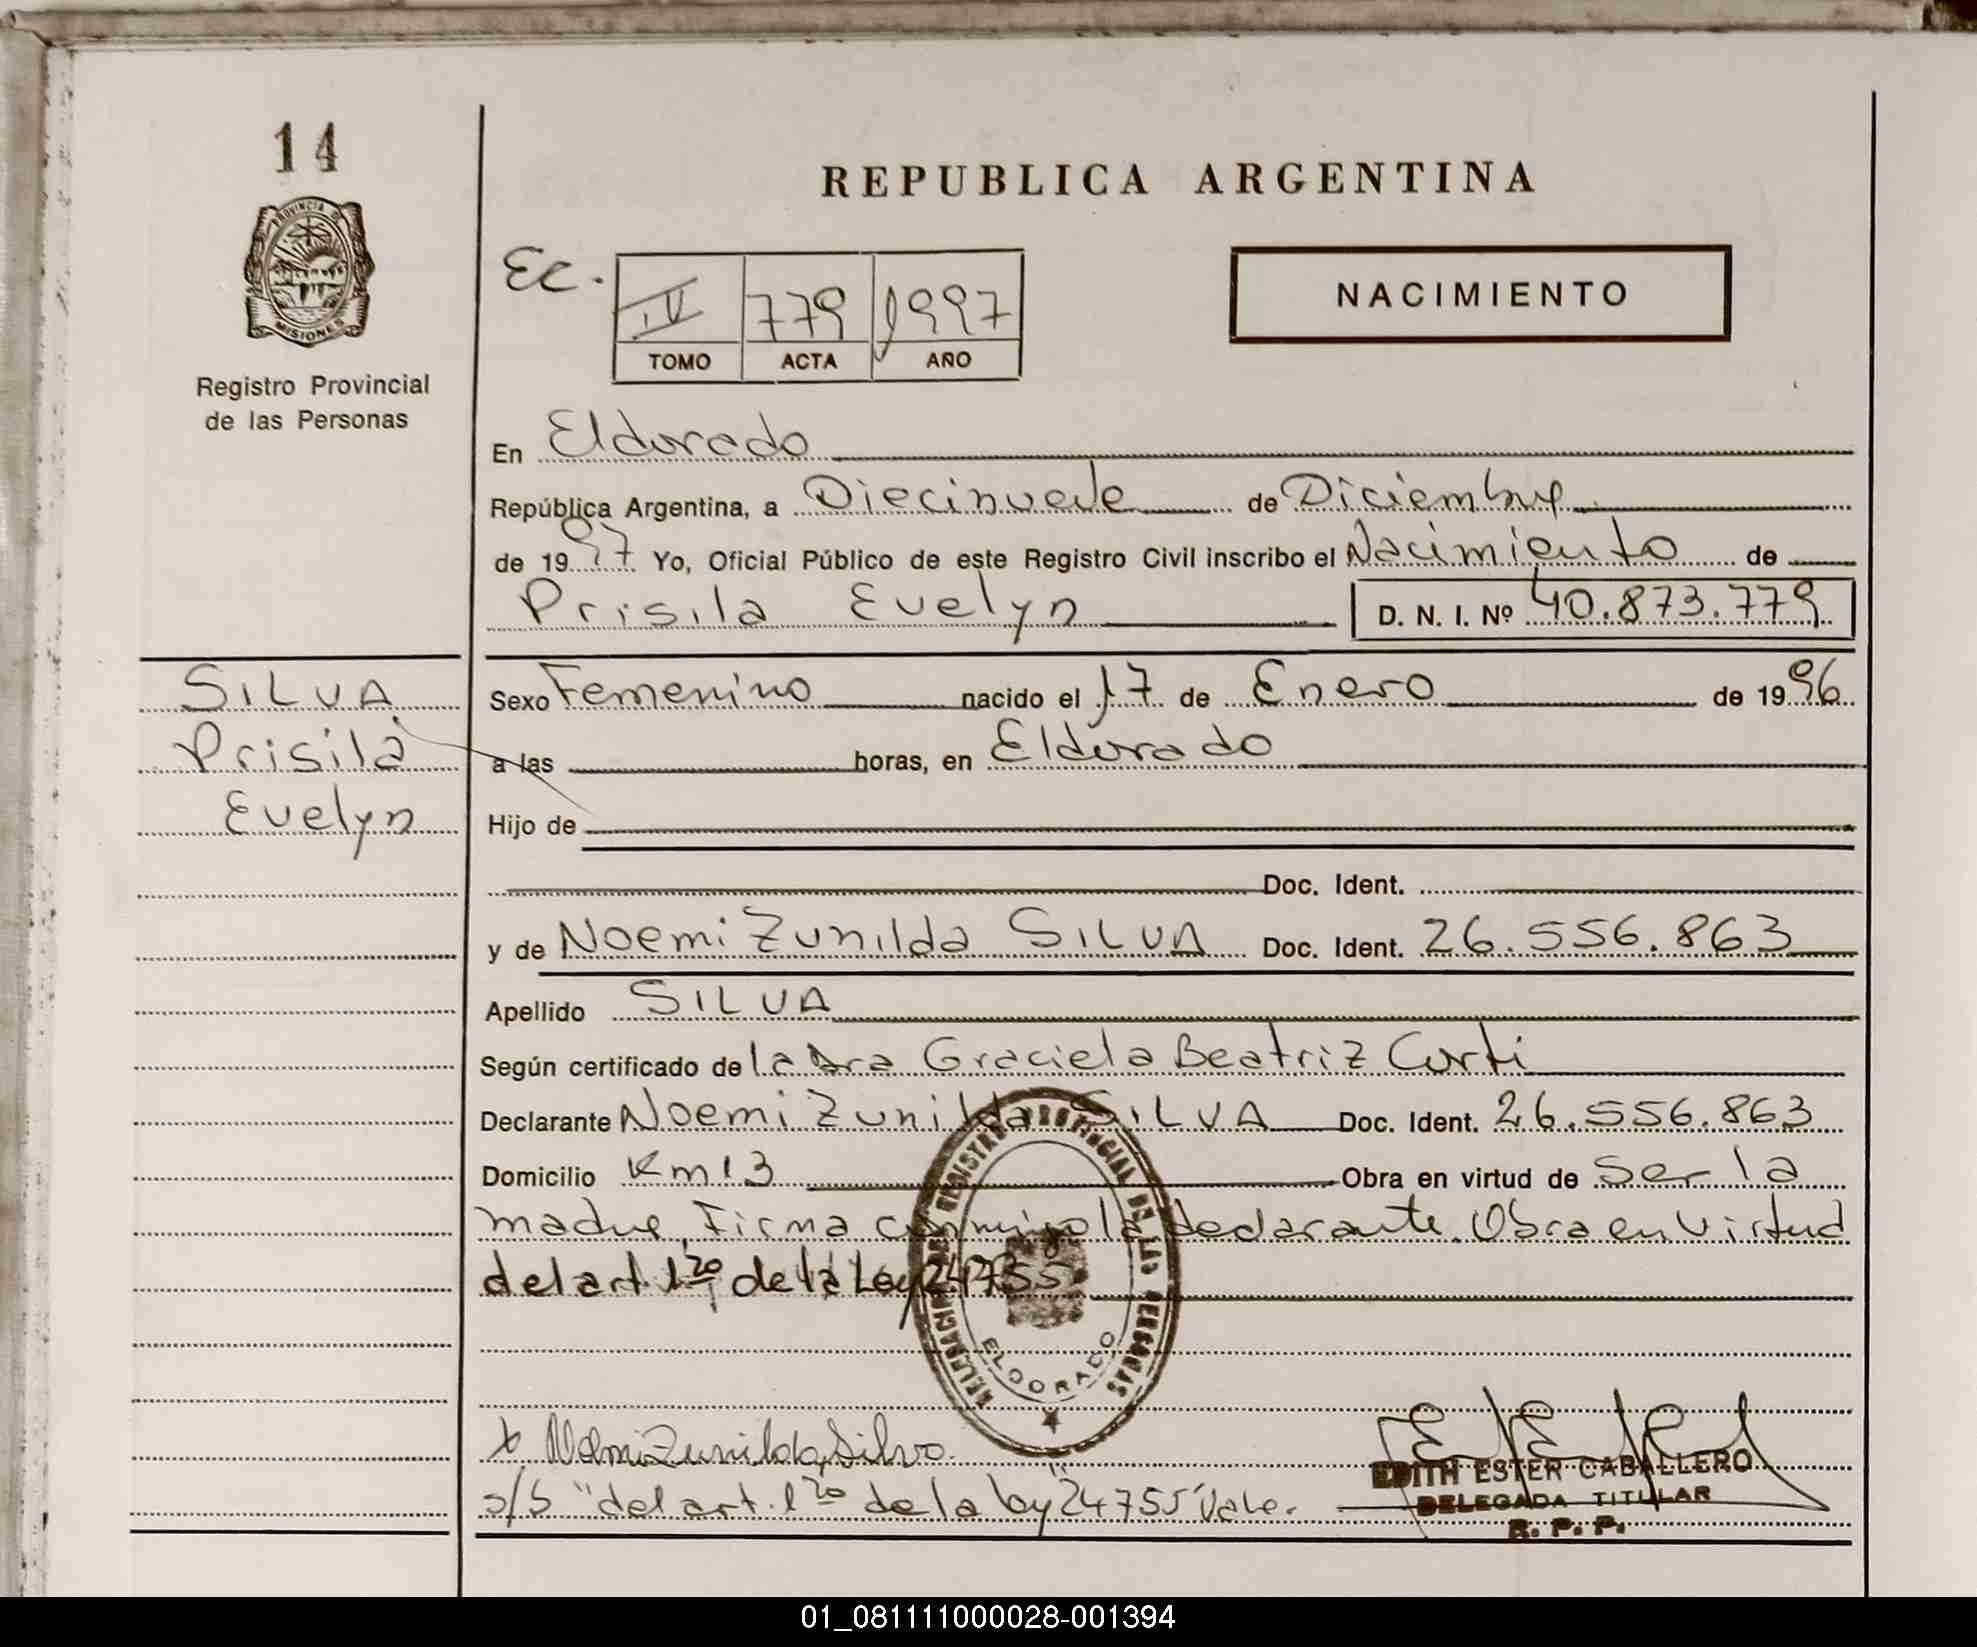 14
PROVINCIA DE
MISIONES
Registro Provincial
de las Personas
REPUBLICA ARGENTINA
Ec.
IV 779 1997
TOMO ACTA AÑO
NACIMIENTO
En Eldorado
República Argentina, a Diecinueve de Diciembre
de 1997 Yo, Oficial Público de este Registro Civil inscribo el Nacimiento de
Prisila Evelyn D. N. I. Nº 40.873.779
SILVA
Prisila
Evelyn
Sexo Femenino nacido el 17 de Enero de 1996
a las horas, en Eldorado
Hijo de
Doc. Ident.
y de Noemi Zunilda SILVA Doc. Ident. 26.556.863
Apellido SILVA
Según certificado de la Dra Graciela Beatriz Curti
Declarante Noemi Zunilda SILVA Doc. Ident. 26.556.863
Domicilio Km 13 Obra en virtud de Ser la
madre, Firma conmigo la declarante. Obra en Virtud
del art. 1ro de la Ley 24755
REGISTRO PROVINCIAL DE LAS PERSONAS
ELDORADO
x Noemi Zunilda Silva.
s/b "del art. 1ro de la ley 24755" Vale.
EDITH ESTER CABALLERO
DELEGADA TITULAR
R. P. P.
01_081111000028-001394